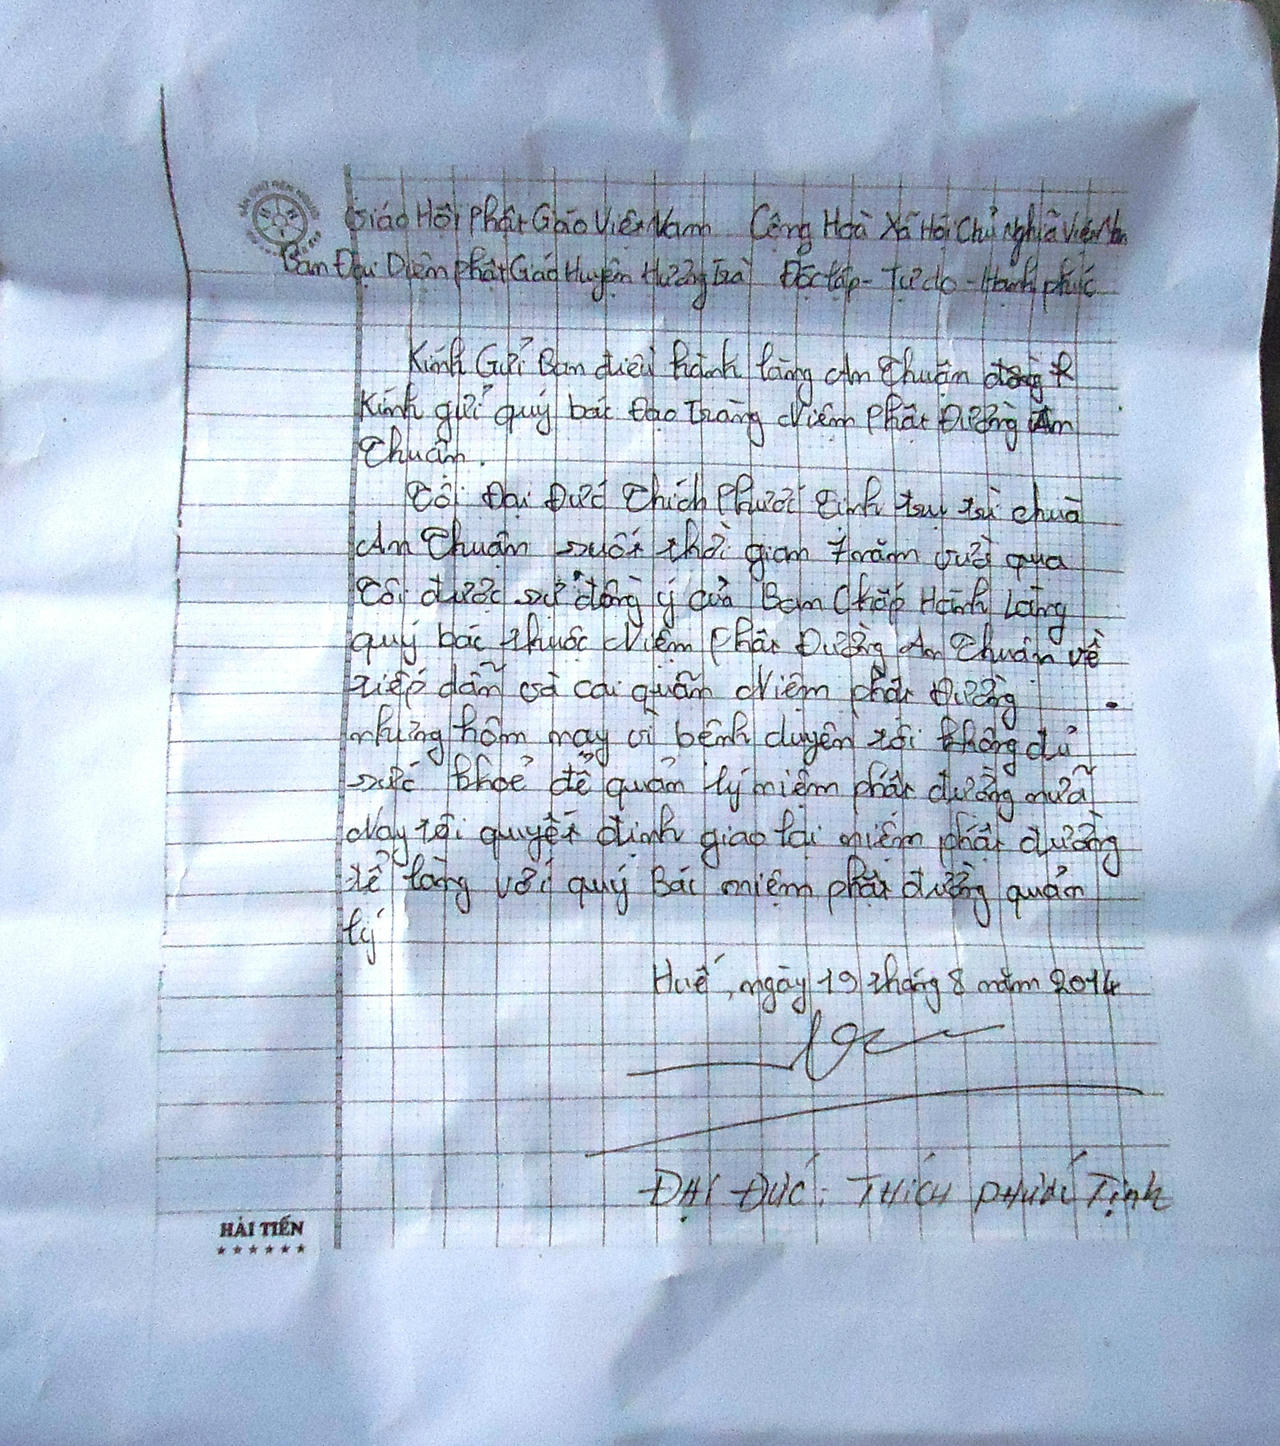 Giáo Hội Phật Giáo Việt Nam Cộng Hoà Xã Hội Chủ nghĩa Việt Nam
Ban Đại Diện Phật Giáo Huyện Hương Trà Độc lập - Tự do - Hạnh phúc
Kính Gửi Ban điều hành làng An Thuận
Kính gửi quý bác Đạo Tràng Niệm Phật Đường An
Thuận.
Tôi Đại Đức Thích Phước Tịnh trụ trì chùa
An Thuận suốt thời gian 7 năm vừa qua
Tôi được sự đồng ý của Ban Chấp Hành Làng
quý bác thuộc Niệm Phật Đường An Thuận về
tiếp dẫn và cai quản Niệm phật Đường
nhưng hôm nay vì bệnh duyên tôi không đủ
sức khoẻ để quản lý niệm phật đường nữa
Nay tôi quyết định giao lại niệm phật đường
để làng với quý Bác niệm phật đường quản
lý
Huế, ngày 19 tháng 8 năm 2014
ĐẠI ĐỨC: THÍCH PHƯỚC Tịnh
HẢI TIẾN